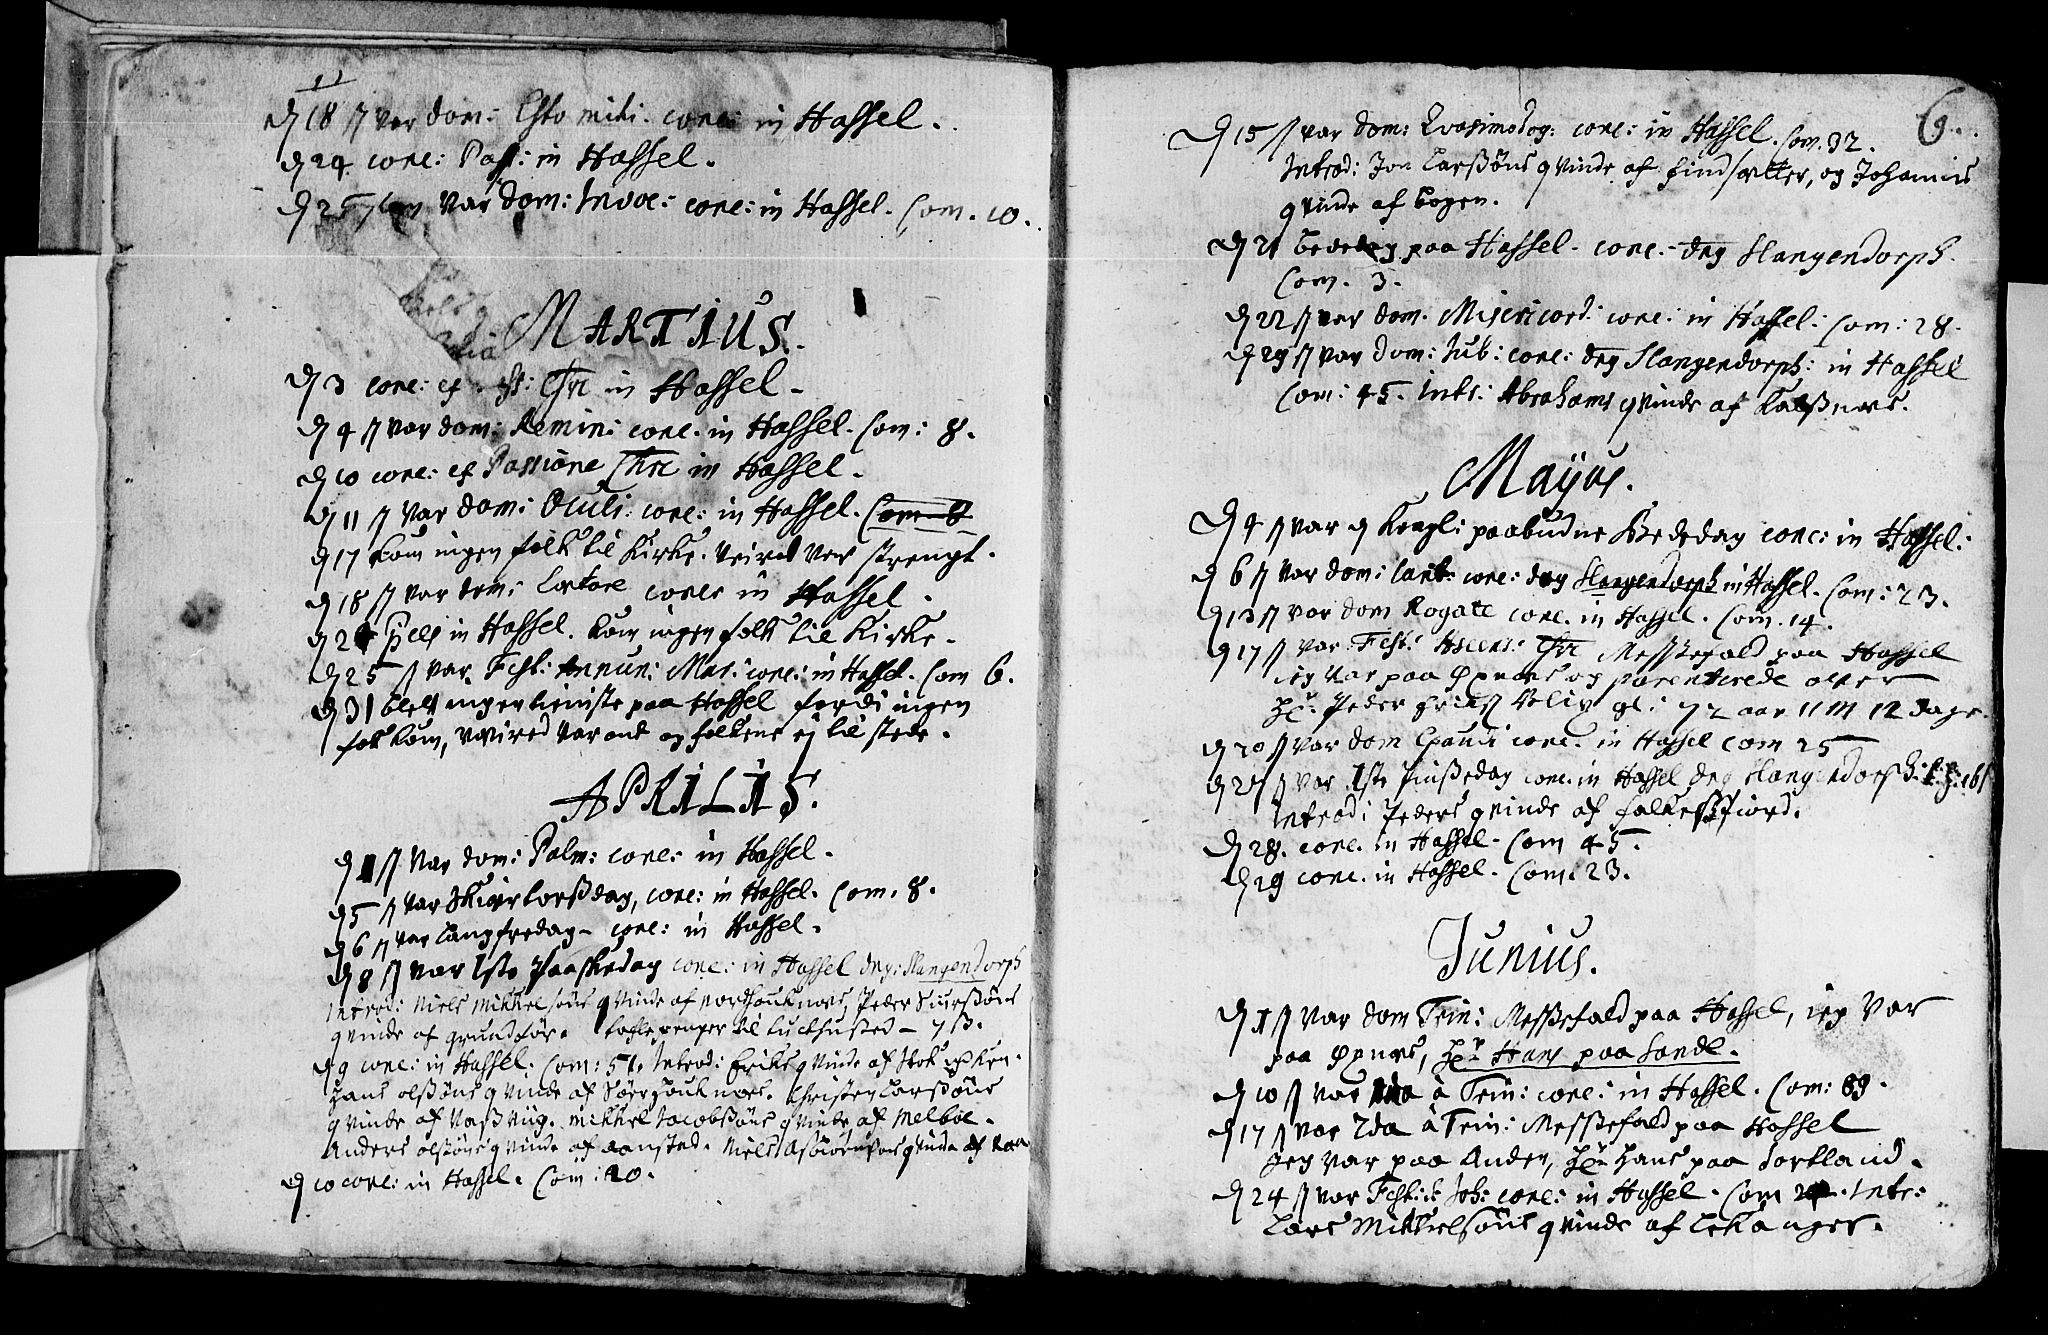 d 18 // var dom: Esto mihi. conc: in Hassel.
d 24 conc: Pass: in Hassel.
d 25 var dom: Invoc: conc: in Hassel. Com. 10.
MARTIUS.
d 3 conc: Chr in Hassel.
d 4 // var dom: Remin: conc. in Hassel. Com: 8.
d 10 conc: ex Passione Chr in Hassel.
d 11 // var dom: Oculi: conc: in Hassel. Com 8
d 17 kom ingen folk til Kirke. veiret var strengt.
d 18 // var dom: Lætare conc: in Hassel.
d 24 in Hassel. kom ingen folk til Kirke.
d 25 // var Fest: Annun: Mar: conc: in Hassel. Com 6.
d 31 blef ingen tieniste paa Hassel fordi ingen
folk kom, veired var ont og folkene ej til stede.
APRILIS.
d 1 // var dom: Palm: conc: in Hassel.
d 5 // var Skiertorßdag, conc: in Hassel. Com. 8.
d 6 // var Langfredag. conc: in Hassel.
d 8 // var 1ste Paaskedag conc: in Hassel dng: Slangendorph
Introd: Niels Mikkelsøns qvinde af Peder Siursøns
qvinde af grundfør. penger til 7 ß.
d 9 conc: in Hassel. Com: 51. Introd: Eriks qvinde af
Hans olßøns qvinde af Christen Larßøns
qvinde af Mikkel Jacobßøns qvinde af Melboe.
Anders olßøns qvinde af aansted. Niels qvinde af
d 10 conc: in Hassel. Com: 20.
6.
d 15 // var dom: Qvasimodog: conc: in Hassel. Com. 32.
Introd: Jon Larßøns qvinde af findsætter, og Johannis
qvinde af Bogen.
d 21 Bededag paa Hassel. conc. dng Slangendorph.
Com. 3.
d 22 // var dom. Misericord: conc: in Hassel: Com: 28.
d 29 // var dom: Jub: conc: dng Slangendorph: in Hassel
Com: 45. Intr: Abrahams qvinde af
Mayus.
d 4 // var d Kongl: paabudne Bededag conc: in Hassel:
d 6 // var dom: Cant: conc: dng Slangendorph in Hassel. Com: 23.
d 13 // var dom Rogate conc. in Hassel. Com. 14.
d 17 // var Fest: Ascens: Chr Messefald paa Hassel
ieg var paa Øxnæs og parenterede over
Hr. Peder gl: 72 aar 11 M 12 dage.
d 20 // var dom Exaudi conc. in Hassel Com 25
d 27 // var 1ste Pinßedag conc. in Hassel dng Slangendorph:
Introd: Peders qvinde af falkeßfiord.
d 28. conc. in Hassel. Com 45.
d 29 conc. in Hassel. Com. 23.
Junius.
d 3 // var dom Trin: Messefald paa Hassel, ieg var
paa Øxnæs, Hr Hans paa Sande.
d 10 // var 1ma à Trin: conc: in Hassel. Com: 89.
d 17 // var 2da à Trin: Messefald paa Hassel
Jeg var paa Anden, Hr Hans paa Sortland.
d 24 // var Fest: Joh: conc: in Hassel. Com Intr:
Lars Mikkelsøns qvinde af Lekanger.